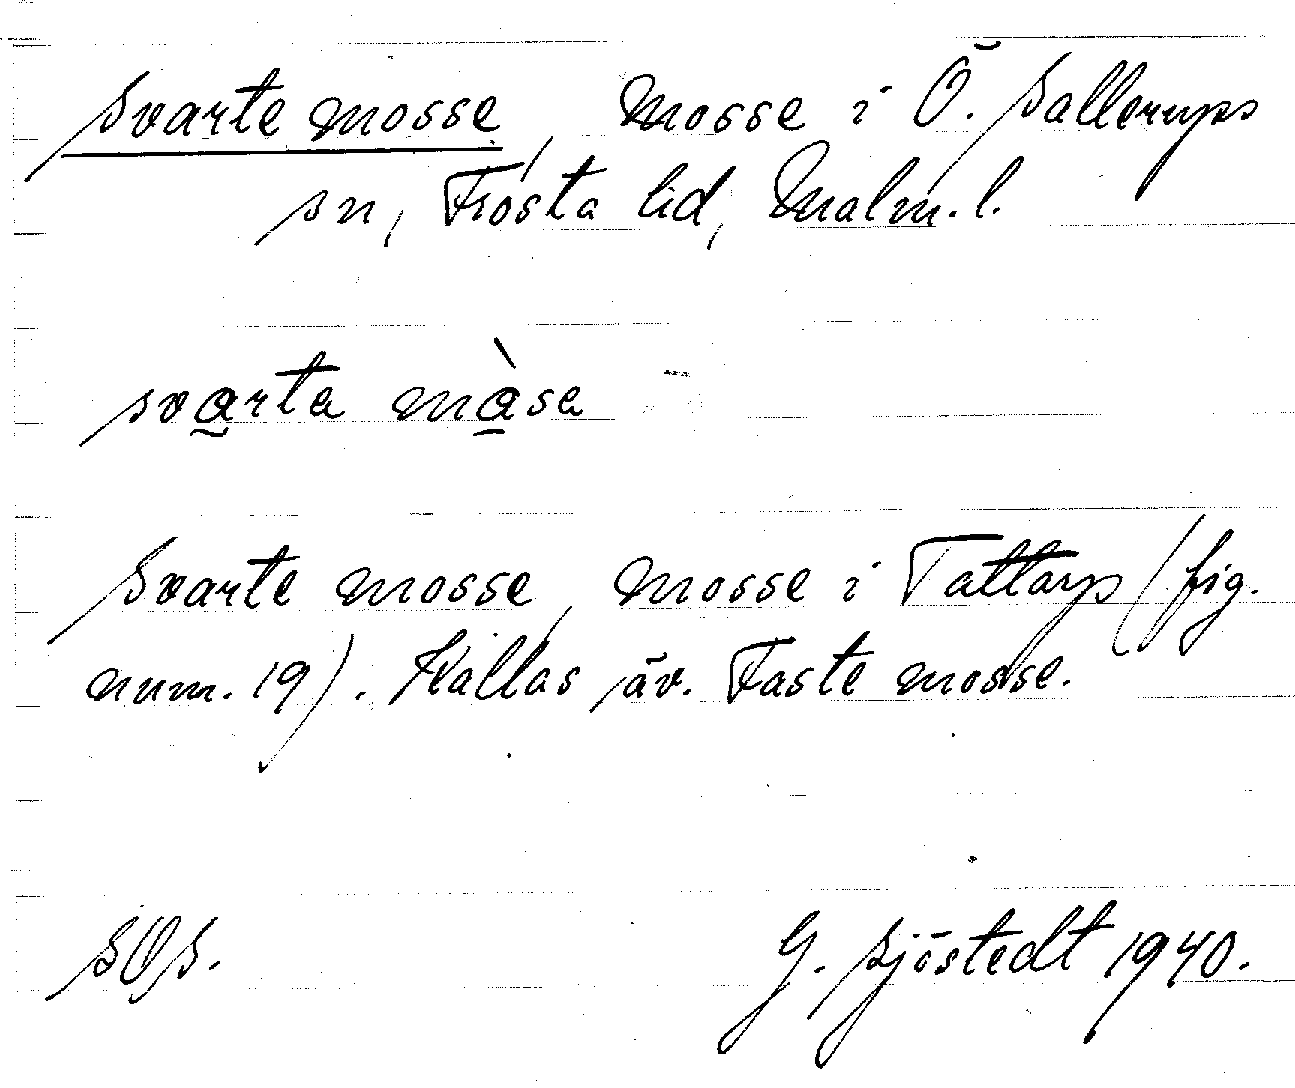 Svarte mosse, Mosse i Ö. Sallerups
sn, Frosta hd, Malm. l.
svarta måsa
Svarte mosse, mosse i Tattarp (fig.
num. 19). Kallas äv. Faste mosse.
SOS.
G. Sjöstedt 1940.